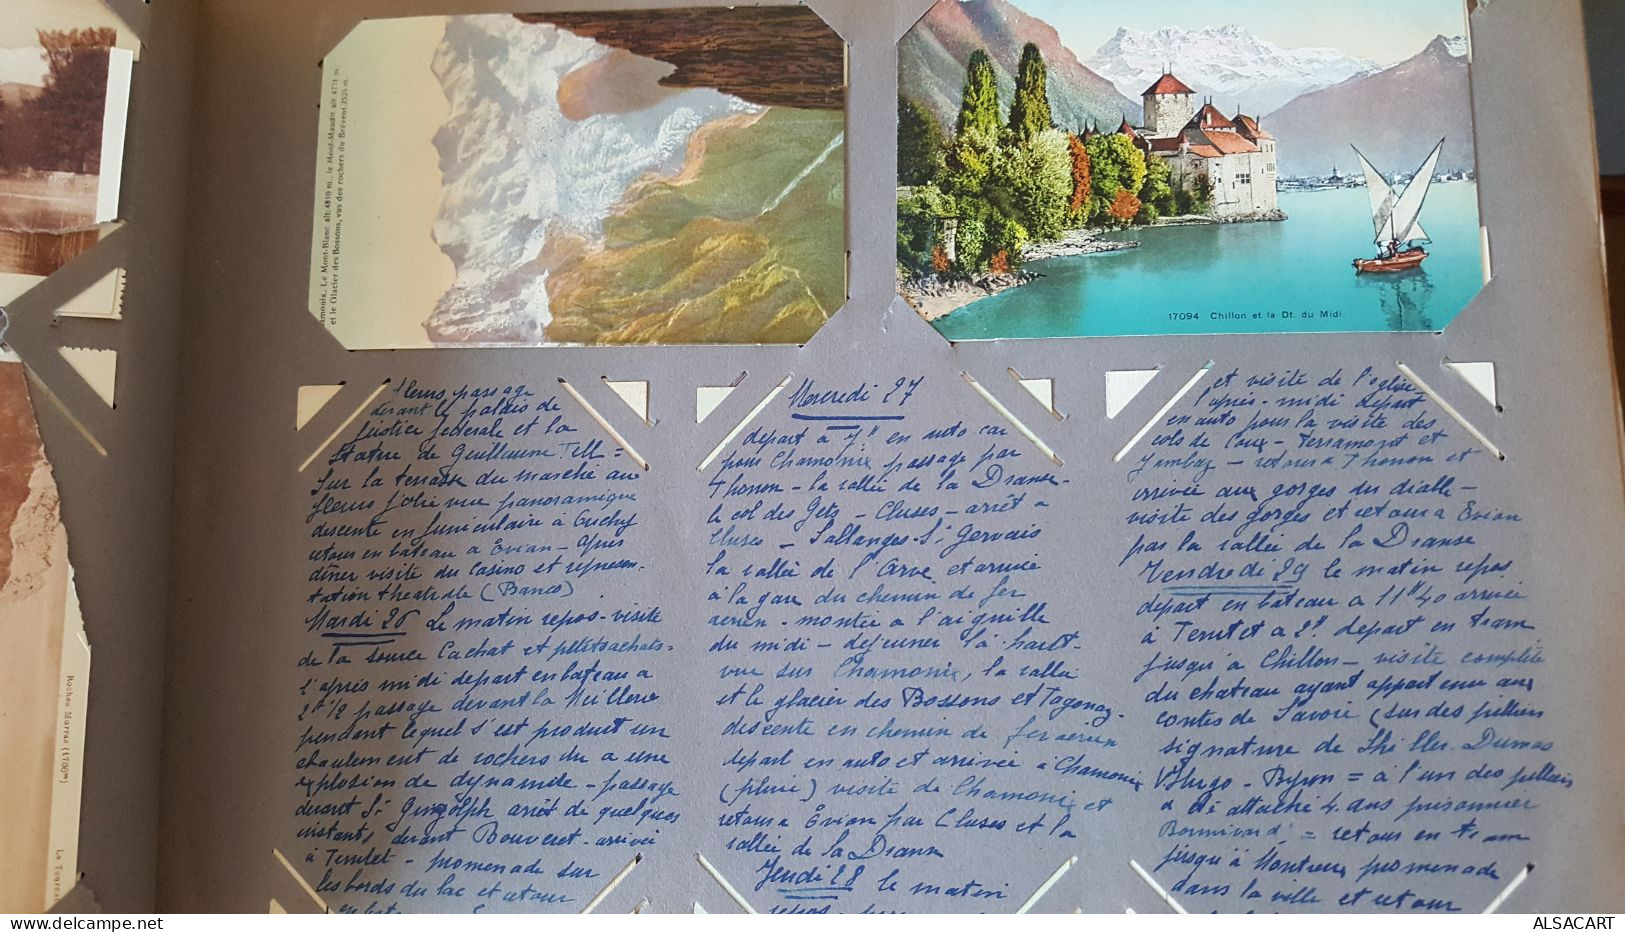 Chamonix. Le Mont-Blanc alt. 4810 m., le Mont-Maudit alt. 4771 m.
et le Glacier des Bossons, vus des rochers du Brévent, 2525 m.
17094 Chillon et la Dt. du Midi.
Rochers Murraz (1780m)
fleurs passage
devant le palais de
justice federale et la
statue de Guillaume Tell =
Sur la terrasse du marché aux
fleurs jolie vue panoramique
descente en funiculaire à Ouchy
retour en bateau a Evian - après
diner visite du Casino et représen-
tation theatrale (Banco)
Mardi 26 Le matin repos - visite
de la source Cachat et petits achats -
l'après midi départ en bateau a
2h 1/2 passage devant la Meillerie
pendant lequel s'est produit un
éboulement de rochers du a une
explosion de dynamite - passage
devant St Gingolph arrêt de quelques
instants, devant Bouveret - arrivée
à Territet - promenade sur
les bords du lac et retour
en bateau
Mercredi 27
départ à 7h en auto car
pour Chamonix passage par
Thonon - la vallée de la Dranse -
le col des Gets - Cluses - arrêt a
Cluses - Sallanges - St Gervais
la vallée de l'Arve et arrivée
à la gare du chemin de fer
aerien - montée a l'aiguille
du midi - dejeuner là haut -
vue sur Chamonix, la vallée
et le glacier des Bossons et Taconaz -
descente en chemin de fer aérien
depart en auto et arrivée à Chamonix
(pluie) visite de Chamonix et
retour a Evian par Cluses et la
vallée de la Dranse
Jeudi 28 le matin
repos - pour
et visite de l'église
l'après-midi départ
en auto pour la visite des
cols de Coux - Terramont et
Jambaz - retour a Thonon et
arrivée aux gorges du diable -
visite des gorges et retour a Evian
par la vallée de la Dranse
Vendredi 29 le matin repos
départ en bateau a 11h40 arrivée
à Territet a 2h. depart en tram
jusqu'à Chillon - visite complète
du chateau ayant appartenu aux
contes de Savoie (sur des pilliers
signature de Shiller. Dumas
V. Hugo - Byron = à l'un des pilliers
a été attaché 4 ans prisonnier
Bonnivard = retour en tram
jusqu'à Montreux promenade
dans la ville et retour
ALSACART